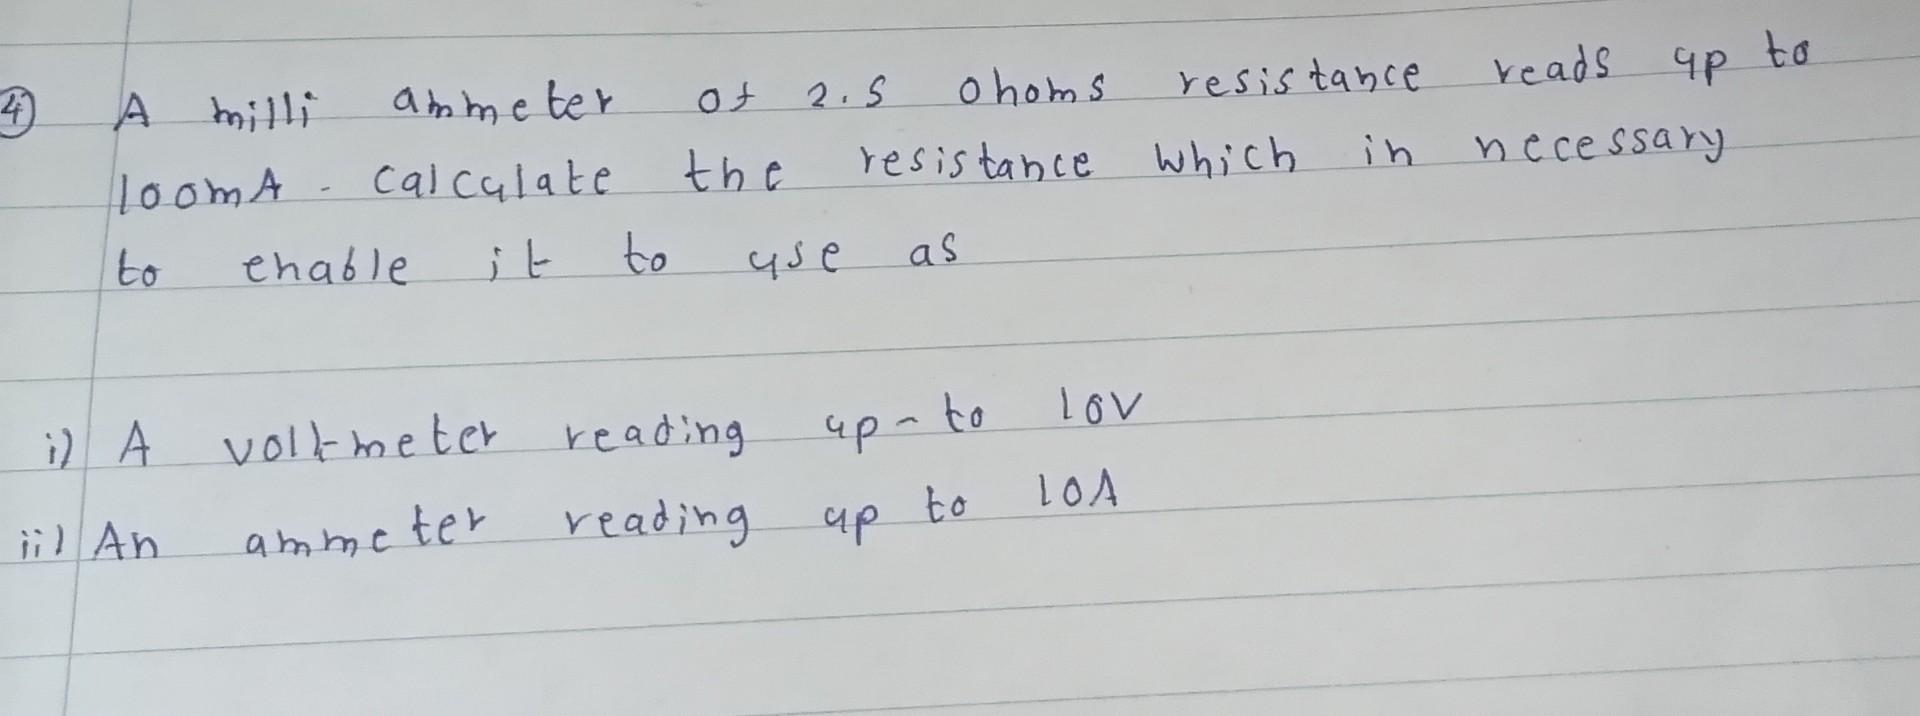 4) A milli ammeter of 2.5 ohoms resistance reads up to
100mA - calculate the resistance which in necessary
to enable it to use as
i) A voltmeter reading up-to 10V
ii) An ammeter reading up to 10A